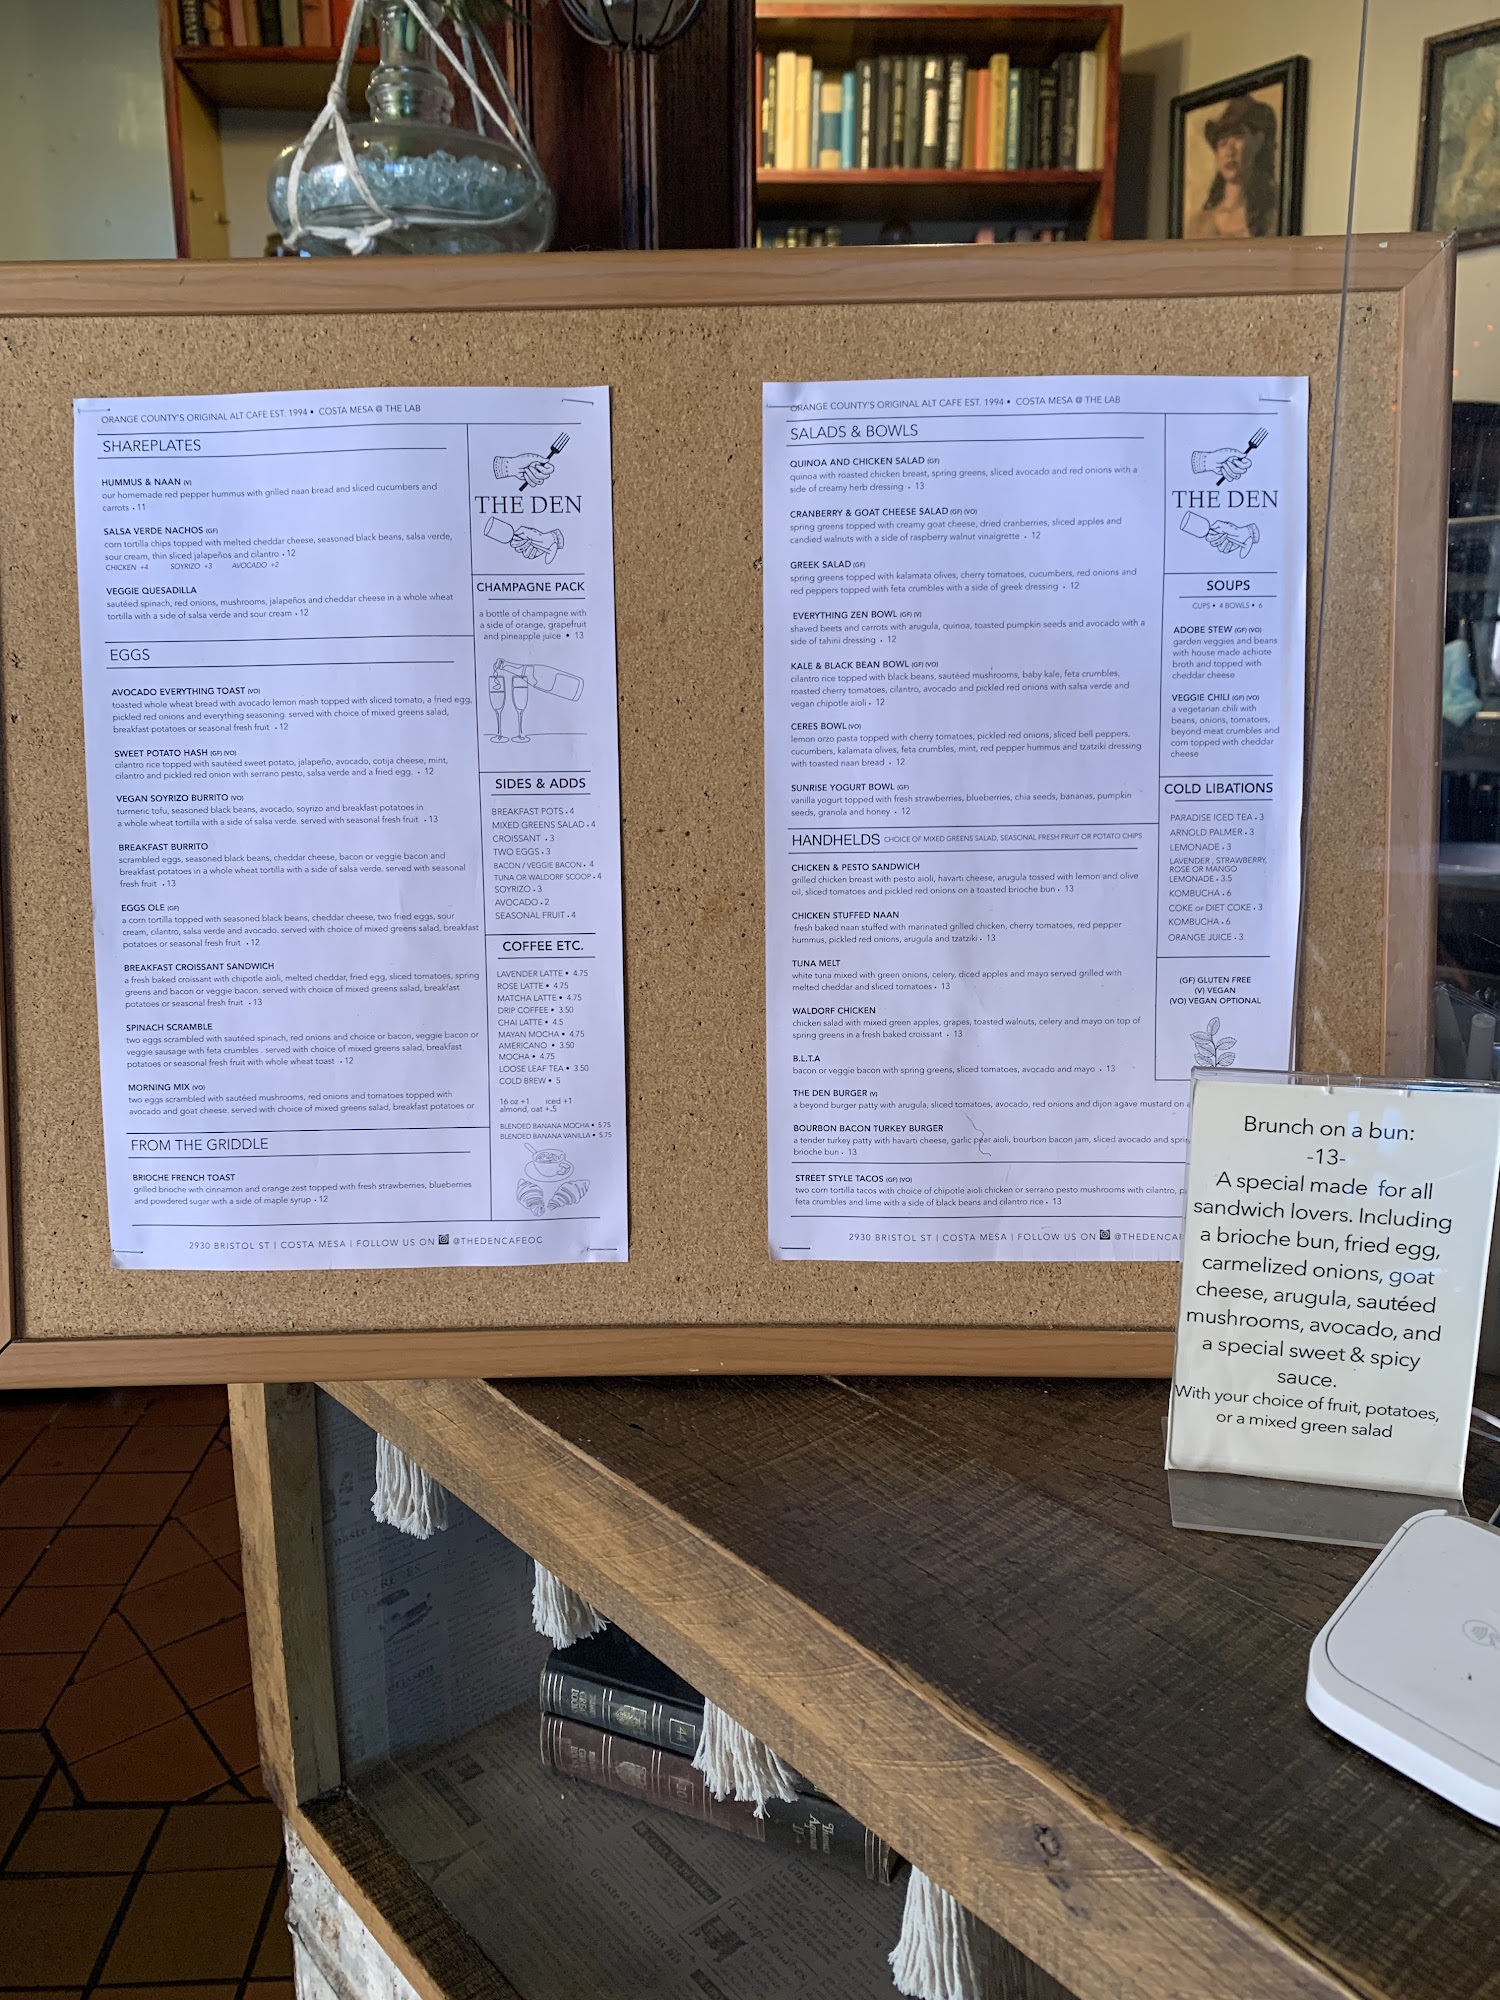 ORANGE COUNTY'S ORIGINAL ALT CAFE EST. 1994 • COSTA MESA @ THE LAB
SHAREPLATES
HUMMUS & NAAN (V)
our homemade red pepper hummus with grilled naan bread and sliced cucumbers and
carrots • 11
SALSA VERDE NACHOS (GF)
corn tortilla chips topped with melted cheddar cheese, seasoned black beans, salsa verde,
sour cream, thin sliced jalapeños and cilantro • 12
CHICKEN +4 SOYRIZO +3 AVOCADO +2
VEGGIE QUESADILLA
sautéed spinach, red onions, mushrooms, jalapeños and cheddar cheese in a whole wheat
tortilla with a side of salsa verde and sour cream • 12
EGGS
AVOCADO EVERYTHING TOAST (VO)
toasted whole wheat bread with avocado lemon mash topped with sliced tomato, a fried egg,
pickled red onions and everything seasoning. served with choice of mixed greens salad,
breakfast potatoes or seasonal fresh fruit • 12
SWEET POTATO HASH (GF) (VO)
cilantro rice topped with sautéed sweet potato, jalapeño, avocado, cotija cheese, mint,
cilantro and pickled red onion with serrano pesto, salsa verde and a fried egg. • 12
VEGAN SOYRIZO BURRITO (VO)
turmeric tofu, seasoned black beans, avocado, soyrizo and breakfast potatoes in
a whole wheat tortilla with a side of salsa verde. served with seasonal fresh fruit • 13
BREAKFAST BURRITO
scrambled eggs, seasoned black beans, cheddar cheese, bacon or veggie bacon and
breakfast potatoes in a whole wheat tortilla with a side of salsa verde. served with seasonal
fresh fruit • 13
EGGS OLE (GF)
a corn tortilla topped with seasoned black beans, cheddar cheese, two fried eggs, sour
cream, cilantro, salsa verde and avocado. served with choice of mixed greens salad, breakfast
potatoes or seasonal fresh fruit • 12
BREAKFAST CROISSANT SANDWICH
a fresh baked croissant with chipotle aioli, melted cheddar, fried egg, sliced tomatoes, spring
greens and bacon or veggie bacon. served with choice of mixed greens salad, breakfast
potatoes or seasonal fresh fruit • 13
SPINACH SCRAMBLE
two eggs scrambled with sautéed spinach, red onions and choice or bacon, veggie bacon or
veggie sausage with feta crumbles . served with choice of mixed greens salad, breakfast
potatoes or seasonal fresh fruit with whole wheat toast • 12
MORNING MIX (VO)
two eggs scrambled with sautéed mushrooms, red onions and tomatoes topped with
avocado and goat cheese. served with choice of mixed greens salad, breakfast potatoes or
FROM THE GRIDDLE
BRIOCHE FRENCH TOAST
grilled brioche with cinnamon and orange zest topped with fresh strawberries, blueberries
and powdered sugar with a side of maple syrup • 12
THE DEN
CHAMPAGNE PACK
a bottle of champagne with
a side of orange, grapefruit
and pineapple juice • 13
SIDES & ADDS
BREAKFAST POTS • 4
MIXED GREENS SALAD • 4
CROISSANT • 3
TWO EGGS • 3
BACON / VEGGIE BACON • 4
TUNA OR WALDORF SCOOP • 4
SOYRIZO • 3
AVOCADO • 2
SEASONAL FRUIT • 4
COFFEE ETC.
LAVENDER LATTE • 4.75
ROSE LATTE • 4.75
MATCHA LATTE • 4.75
DRIP COFFEE • 3.50
CHAI LATTE • 4.5
MAYAN MOCHA • 4.75
AMERICANO • 3.50
MOCHA • 4.75
LOOSE LEAF TEA • 3.50
COLD BREW • 5
16 oz +1 iced +1
almond, oat +.5
BLENDED BANANA MOCHA • 5.75
BLENDED BANANA VANILLA • 5.75
2930 BRISTOL ST | COSTA MESA | FOLLOW US ON @THEDENCAFEOC
ORANGE COUNTY'S ORIGINAL ALT CAFE EST. 1994 • COSTA MESA @ THE LAB
SALADS & BOWLS
QUINOA AND CHICKEN SALAD (GF)
quinoa with roasted chicken breast, spring greens, sliced avocado and red onions with a
side of creamy herb dressing • 13
CRANBERRY & GOAT CHEESE SALAD (GF) (VO)
spring greens topped with creamy goat cheese, dried cranberries, sliced apples and
candied walnuts with a side of raspberry walnut vinaigrette • 12
GREEK SALAD (GF)
spring greens topped with kalamata olives, cherry tomatoes, cucumbers, red onions and
red peppers topped with feta crumbles with a side of greek dressing • 12
EVERYTHING ZEN BOWL (GF) (V)
shaved beets and carrots with arugula, quinoa, toasted pumpkin seeds and avocado with a
side of tahini dressing • 12
KALE & BLACK BEAN BOWL (GF) (VO)
cilantro rice topped with black beans, sautéed mushrooms, baby kale, feta crumbles,
roasted cherry tomatoes, cilantro, avocado and pickled red onions with salsa verde and
vegan chipotle aioli • 12
CERES BOWL (VO)
lemon orzo pasta topped with cherry tomatoes, pickled red onions, sliced bell peppers,
cucumbers, kalamata olives, feta crumbles, mint, red pepper hummus and tzatziki dressing
with toasted naan bread • 12
SUNRISE YOGURT BOWL (GF)
vanilla yogurt topped with fresh strawberries, blueberries, chia seeds, bananas, pumpkin
seeds, granola and honey • 12
HANDHELDS CHOICE OF MIXED GREENS SALAD, SEASONAL FRESH FRUIT OR POTATO CHIPS
CHICKEN & PESTO SANDWICH
grilled chicken breast with pesto aioli, havarti cheese, arugula tossed with lemon and olive
oil, sliced tomatoes and pickled red onions on a toasted brioche bun • 13
CHICKEN STUFFED NAAN
fresh baked naan stuffed with marinated grilled chicken, cherry tomatoes, red pepper
hummus, pickled red onions, arugula and tzatziki • 13
TUNA MELT
white tuna mixed with green onions, celery, diced apples and mayo served grilled with
melted cheddar and sliced tomatoes • 13
WALDORF CHICKEN
chicken salad with mixed green apples, grapes, toasted walnuts, celery and mayo on top of
spring greens in a fresh baked croissant • 13
B.L.T.A
bacon or veggie bacon with spring greens, sliced tomatoes, avocado and mayo • 13
THE DEN BURGER (V)
a beyond burger patty with arugula, sliced tomatoes, avocado, red onions and dijon agave mustard on
BOURBON BACON TURKEY BURGER
a tender turkey patty with havarti cheese, garlic pear aioli, bourbon bacon jam, sliced avocado and
brioche bun • 13
STREET STYLE TACOS (GF) (VO)
two corn tortilla tacos with choice of chipotle aioli chicken or serrano pesto mushrooms with cilantro,
feta crumbles and lime with a side of black beans and cilantro rice • 13
THE DEN
SOUPS
CUPS • 4 BOWLS • 6
ADOBE STEW (GF) (VO)
garden veggies and beans
with house made achiote
broth and topped with
cheddar cheese
VEGGIE CHILI (GF) (VO)
a vegetarian chili with
beans, onions, tomatoes,
beyond meat crumbles and
corn topped with cheddar
cheese
COLD LIBATIONS
PARADISE ICED TEA • 3
ARNOLD PALMER • 3
LEMONADE • 3
LAVENDER , STRAWBERRY,
ROSE OR MANGO
LEMONADE • 3.5
KOMBUCHA • 6
COKE or DIET COKE • 3
KOMBUCHA • 6
ORANGE JUICE • 3
(GF) GLUTEN FREE
(V) VEGAN
(VO) VEGAN OPTIONAL
2930 BRISTOL ST | COSTA MESA | FOLLOW US ON @THEDENCAF
Brunch on a bun:
-13-
A special made for all
sandwich lovers. Including
a brioche bun, fried egg,
carmelized onions, goat
cheese, arugula, sautéed
mushrooms, avocado, and
a special sweet & spicy
sauce.
With your choice of fruit, potatoes,
or a mixed green salad
44